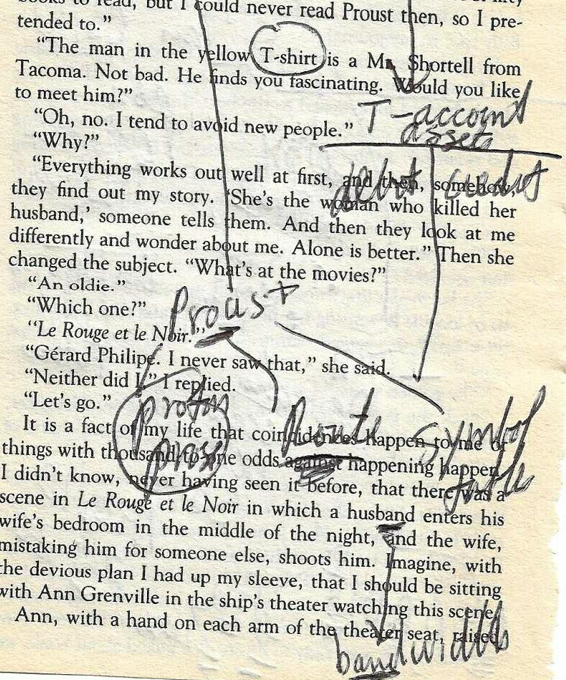 books to read, but I could never read Proust then, so I pre-
tended to."
"The man in the yellow T-shirt is a Mr. Shortell from
Tacoma. Not bad. He finds you fascinating. Would you like
to meet him?"
T-account
"Oh, no. I tend to avoid new people."
assets
"Why?"
"Everything works out well at first, and then, somehow,
debit credit
they find out my story. 'She's the woman who killed her
husband,' someone tells them. And then they look at me
differently and wonder about me. Alone is better." Then she
changed the subject. "What's at the movies?"
"An oldie."
"Which one?"
Proust
"Le Rouge et le Noir."
"Gérard Philipe. I never saw that," she said.
"Neither did I," I replied.
"Let's go."
proton
Route
symbol
It is a fact of my life that coincidences happen to me or
proxy
table
things with thousand-to-one odds against happening happen.
I didn't know, never having seen it before, that there was a
scene in Le Rouge et le Noir in which a husband enters his
wife's bedroom in the middle of the night, and the wife,
mistaking him for someone else, shoots him. Imagine, with
the devious plan I had up my sleeve, that I should be sitting
with Ann Grenville in the ship's theater watching this scene.
Ann, with a hand on each arm of the theater seat, raised
bandwidth